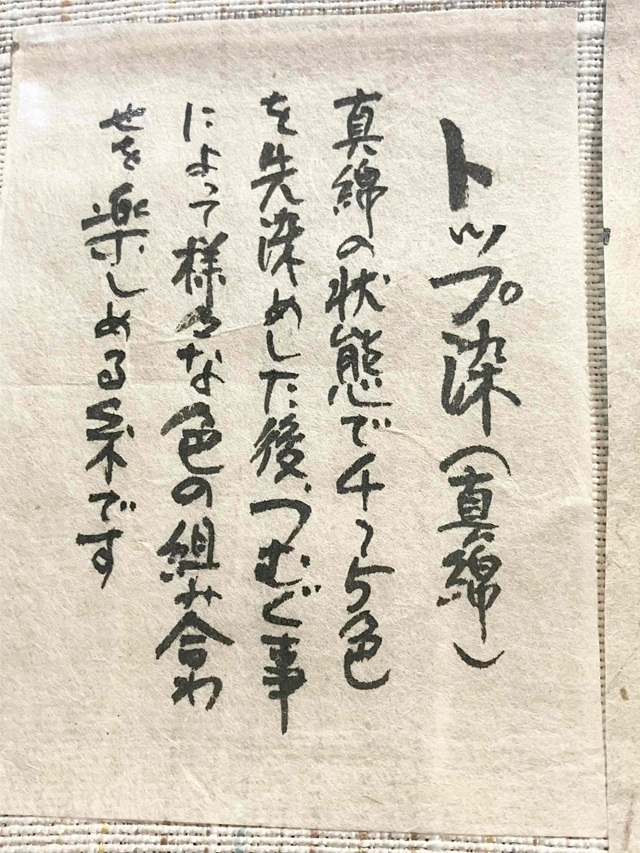 トップ染(真綿)
真綿の状態で4~5色
を先染めした後、つむぐ事
によって様々な色の組み合わ
せを楽しめる糸です